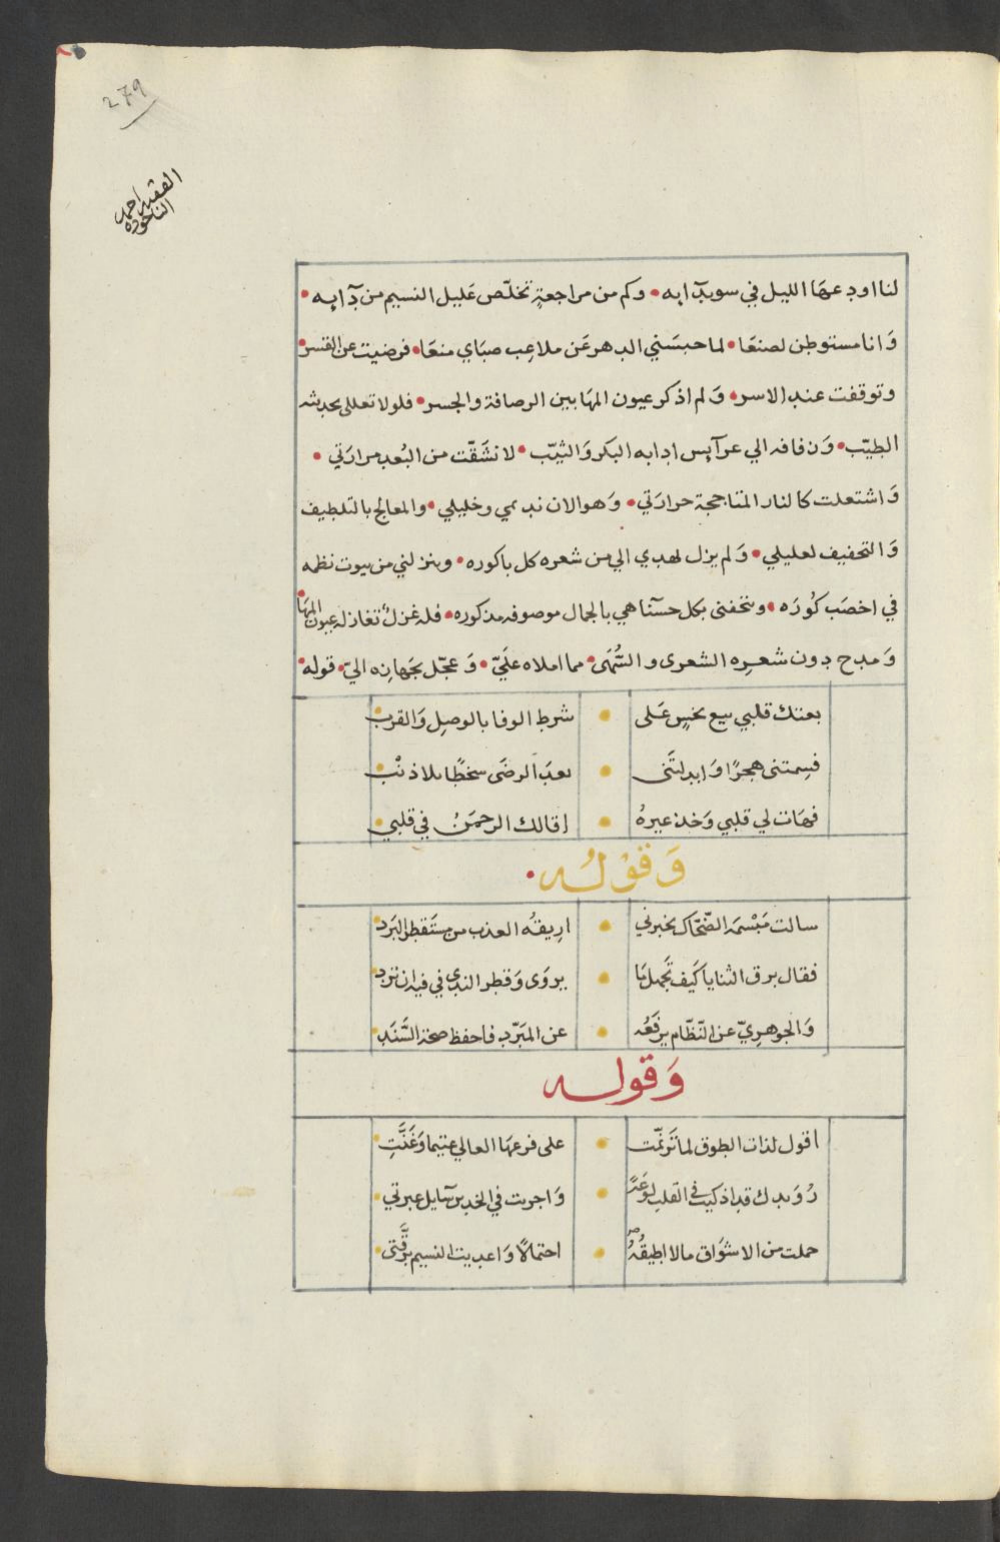 279
الفقير احمد
الناخوده
لنا اودعها الليل في سويدآئه • وكم من مراجعةٍ تخلّص عَليل النسيم من دآئه •
وَانا مستوطن لصنعَا • لما حبسَني الدهر عَن ملاعِب صبَاي منعَا • فرضيت عن القسر •
وتوقفت عند الاسر • وَلم اذكر عيون المهَا بين الرصافة والجسر • فلولا تعللى بحديثه
الطيّب • وَزفافه الي عرآيس ادابه البكر وَالثيّب • لانشَقّت من البُعد مرارَتي •
وَاشتعلت كالنار المتاججة حرارَتي • وَهو الان نديمي وخليلي • والمعالج بالتلطيف
وَالتخفيف لعليلي • وَلم يزل يهدي الي من شعره كل باكوره • وينزلني من بيوت نظمه
في اخصَب كُورَه • ويتحفنى بكل حسنآ هي بالجمال موصوفه مذكوره • فله غزلٌ تغازله عيون المهَا •
وَمدح دون شعرِه الشعرى والسُّهَى • مما املاه علَيّ • وَعجّل بجَهازه اليّ • قوله •
بعتك قلبي بيع بخسٍ عَلى • شرط الوفا بالوصلِ وَالقربِ •
فسِمتنى هجرًا وَابدلتَنى • بعدَ الرضَى سخطًا بلا ذنْبِ •
فهَات لي قلبي وَخذ غيرهُ • اقالك الرحمَنُ في قلبي •
وَقَوْلُه •
سالت مَبْسمَه الضّحّاك يخبرني • اريقُه العذب من مستَقطر البَرد •
فقال برق الثنايا كَيف تَجهلهَا • يروَى وَقطر الندى في فيه ان ترد •
وَالجوهريّ عن النّظّام يرفَعُه • عن المبَرّد فاحفظ صحة السَّنَدِ •
وَقوله
اقول لذات الطوق لما تَرنمّت • على فرعهَا العالي عتيما وَغَنَّتِ •
رُوَيدك قد اذكيت في القلب لوعَةً • وَاجريت في الخدين سَايل عبرتي •
حملت من الاشوَاق ما لا اطيقُهُ • احتمالاً وَاعديت النسيم برقَّتى •